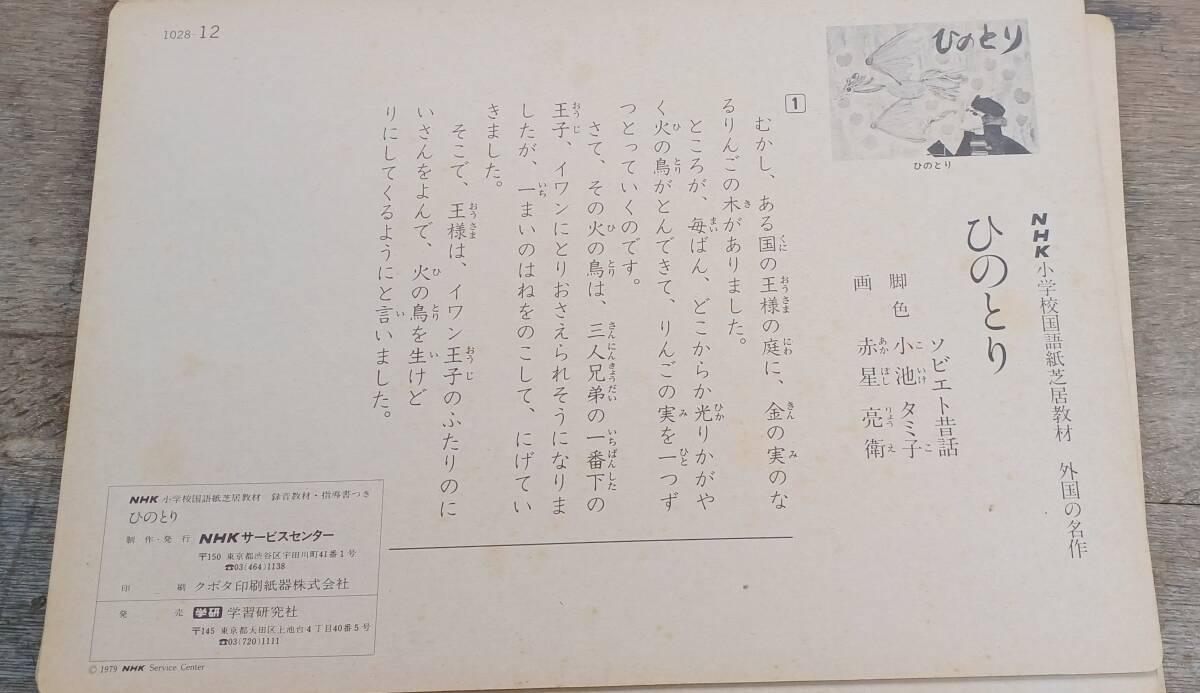 1028-12
ひのとり
ひのとり
NHK小学校国語紙芝居教材 外国の名作
ひのとり
ソビエト昔話
脚色 小池タミ子
こいけ こ
画 赤星亮衛
あかぼしりょうえ
1
むかし、ある国の王様の庭に、金の実のな
くに おうさま にわ きん み
るりんごの木がありました。
き
ところが、毎ばん、どこからか光りかがや
まい ひか
く火の鳥がとんできて、りんごの実を一つず
ひ とり み ひと
つとっていくのです。
さて、その火の鳥は、三人兄弟の一番下の
ひ とり さんにんきょうだい いちばんした
王子、イワンにとりおさえられそうになりま
おうじ
したが、一まいのはねをのこして、にげてい
いち
きました。
そこで、王様は、イワン王子のふたりのに
おうさま おうじ
いさんをよんで、火の鳥を生けど
ひ とり い
りにしてくるようにと言いました。
い
NHK 小学校国語紙芝居教材 録音教材・指導書つき
ひのとり
制作・発行 NHKサービスセンター
〒150 東京都渋谷区宇田川町41番1号
☎03(464)1138
印刷 クボタ印刷紙器株式会社
発売 学研 学習研究社
〒145 東京都大田区上池台4丁目40番5号
☎03(720)1111
© 1979 NHK Service Center